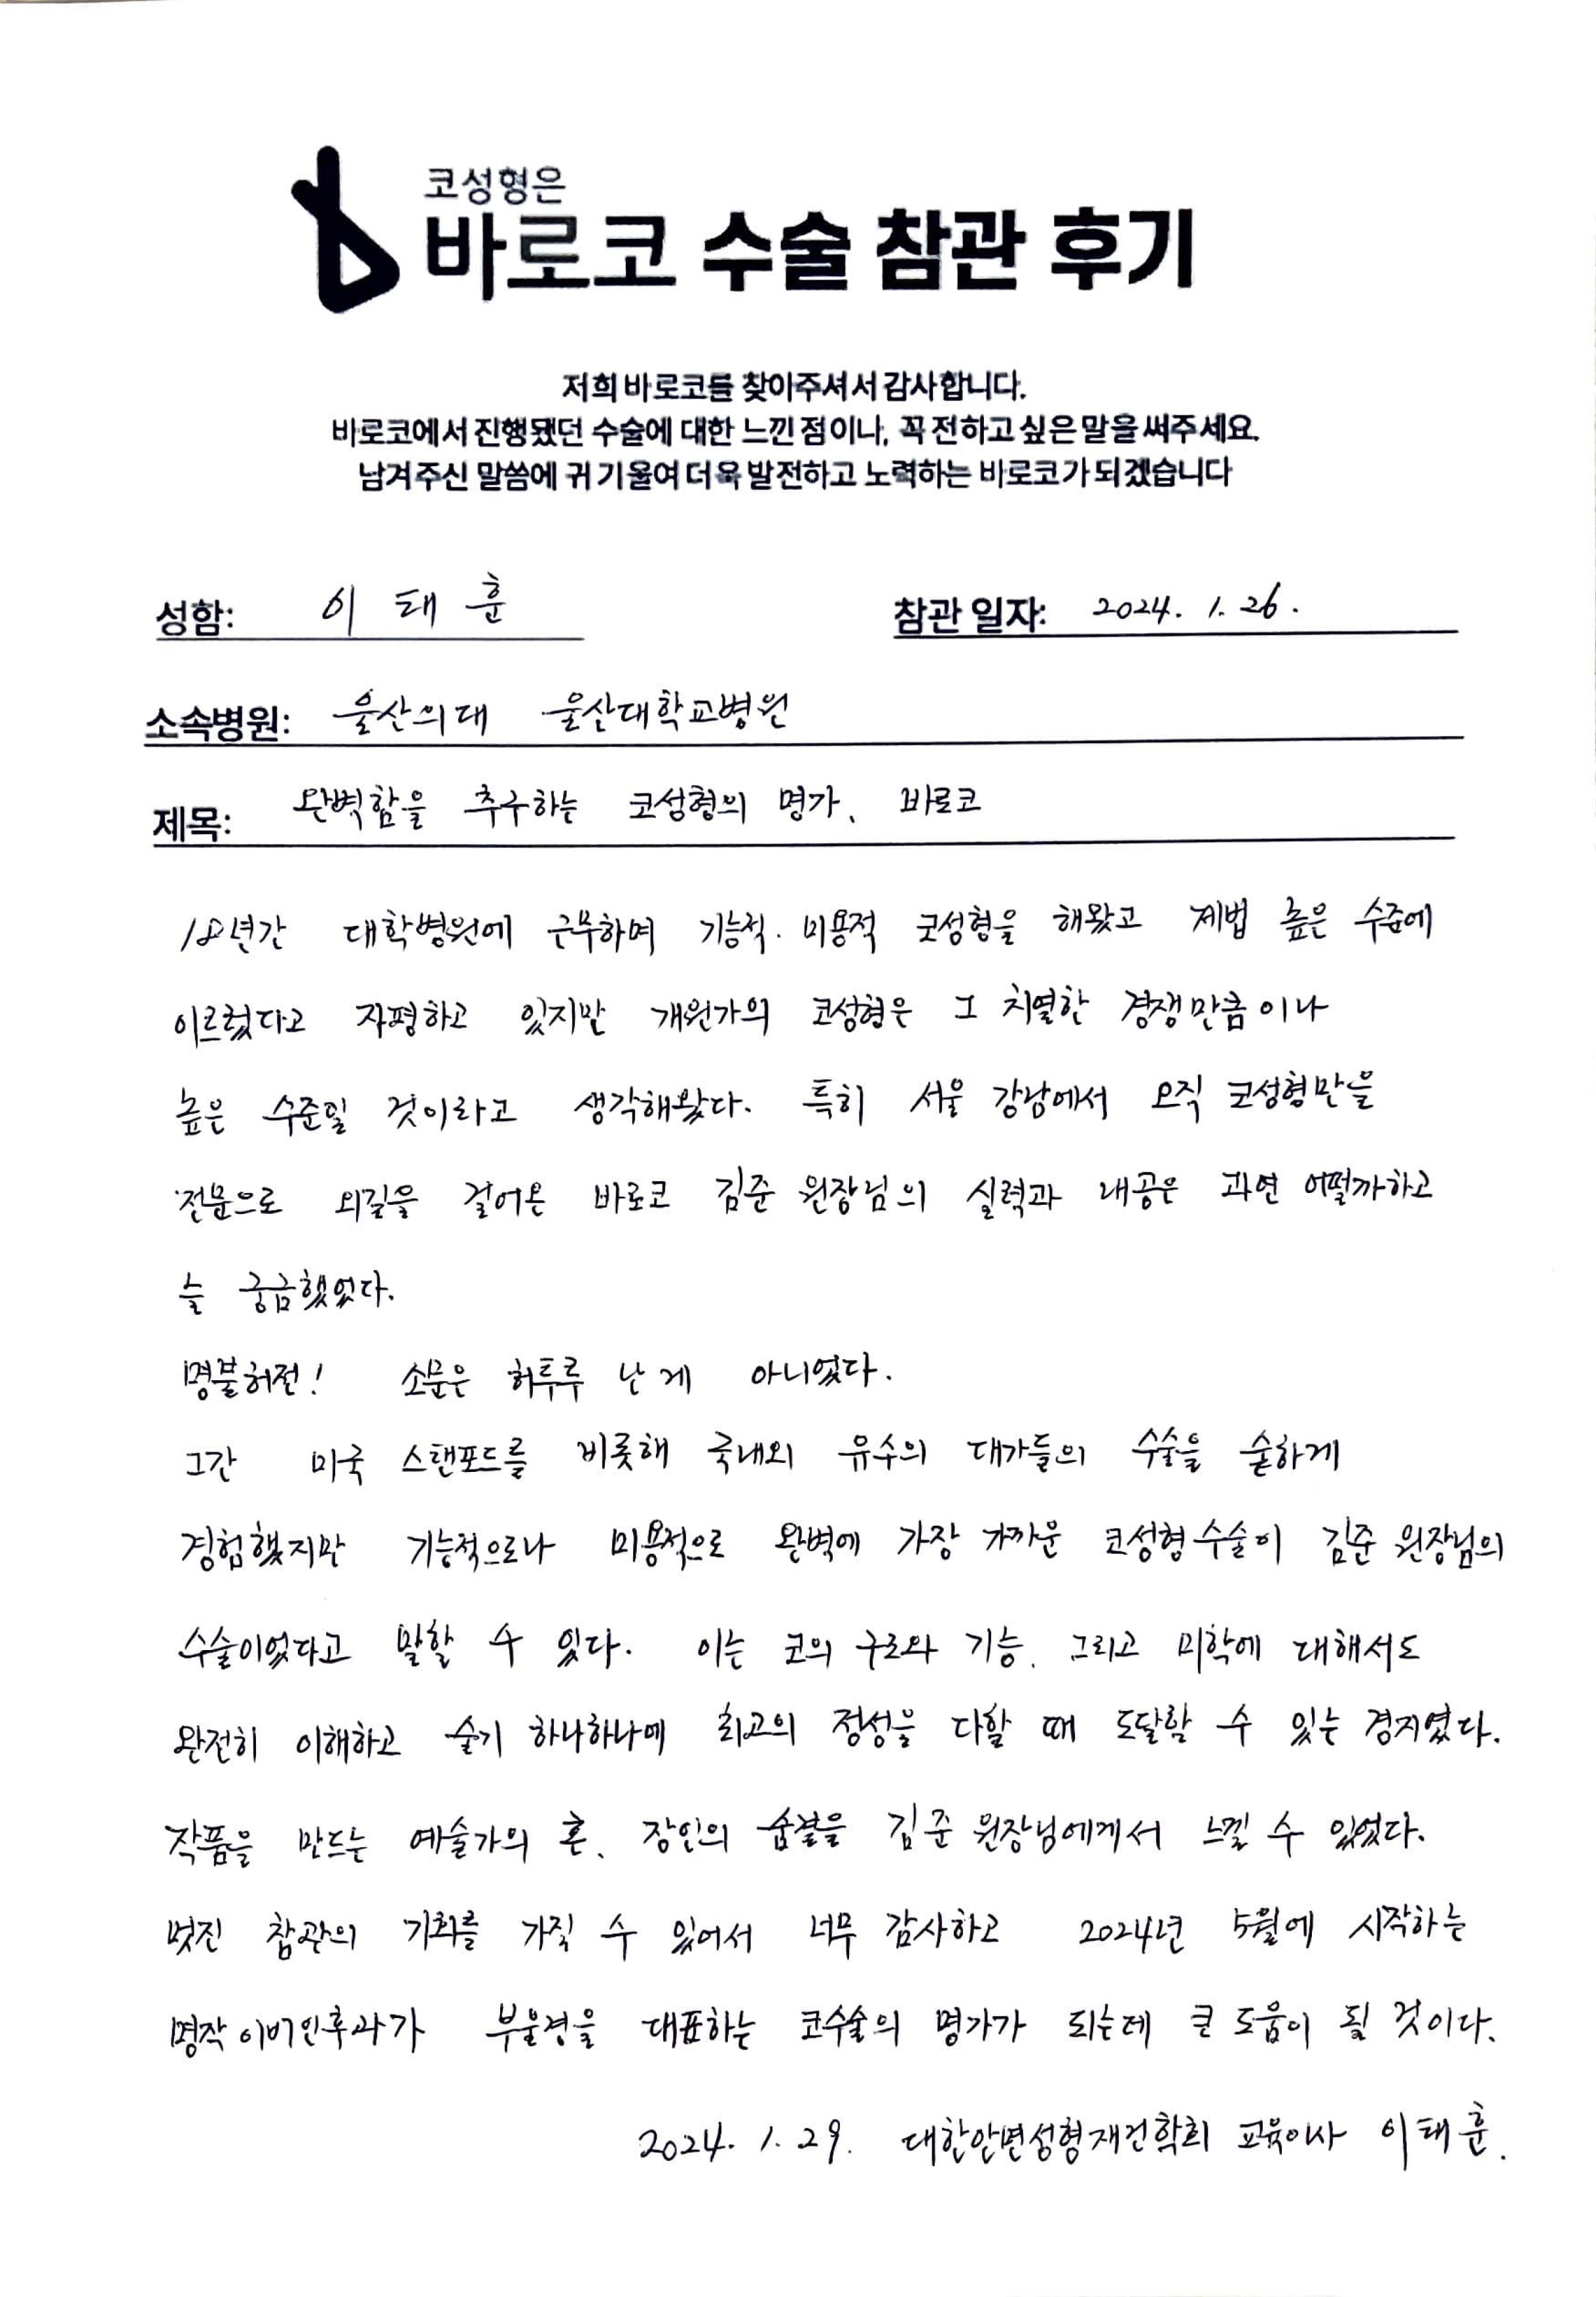 코성형은
바로코 수술 참관 후기
저희 바로코를 찾아주셔서 감사합니다.
바로코에서 진행됐던 수술에 대한 느낀 점이나, 꼭 전하고 싶은 말을 써주세요.
남겨주신 말씀에 귀 기울여 더욱 발전하고 노력하는 바로코가 되겠습니다
성함: 이 태 훈 참관 일자: 2024. 1. 26.
소속병원: 울산의대 울산대학교병원
제목: 완벽함을 추구하는 코성형의 명가, 바로코
18년간 대학병원에 근무하며 기능적. 미용적 코성형을 해왔고 제법 높은 수준에
이르렀다고 자평하고 있지만 개원가의 코성형은 그 치열한 경쟁만큼이나
높은 수준일 것이라고 생각해왔다. 특히 서울 강남에서 오직 코성형만을
전문으로 외길을 걸어온 바로코 김준 원장님의 실력과 내공은 과연 어떨까하고
늘 궁금했었다.
명불허전! 소문은 허투루 난 게 아니었다.
그간 미국 스탠포드를 비롯해 국내외 유수의 대가들의 수술을 숱하게
경험했지만 기능적으로나 미용적으로 완벽에 가장 가까운 코성형수술이 김준 원장님의
수술이었다고 말할 수 있다. 이는 코의 구조와 기능, 그리고 미학에 대해서도
완전히 이해하고 술기 하나하나에 최고의 정성을 다할 때 도달할 수 있는 경지였다.
작품을 만드는 예술가의 혼, 장인의 숨결을 김준 원장님에게서 느낄 수 있었다.
멋진 참관의 기회를 가질 수 있어서 너무 감사하고 2024년 5월에 시작하는
명작이비인후과가 부울경을 대표하는 코수술의 명가가 되는데 큰 도움이 될 것이다.
2024. 1. 29. 대한안면성형재건학회 교육이사 이태훈.